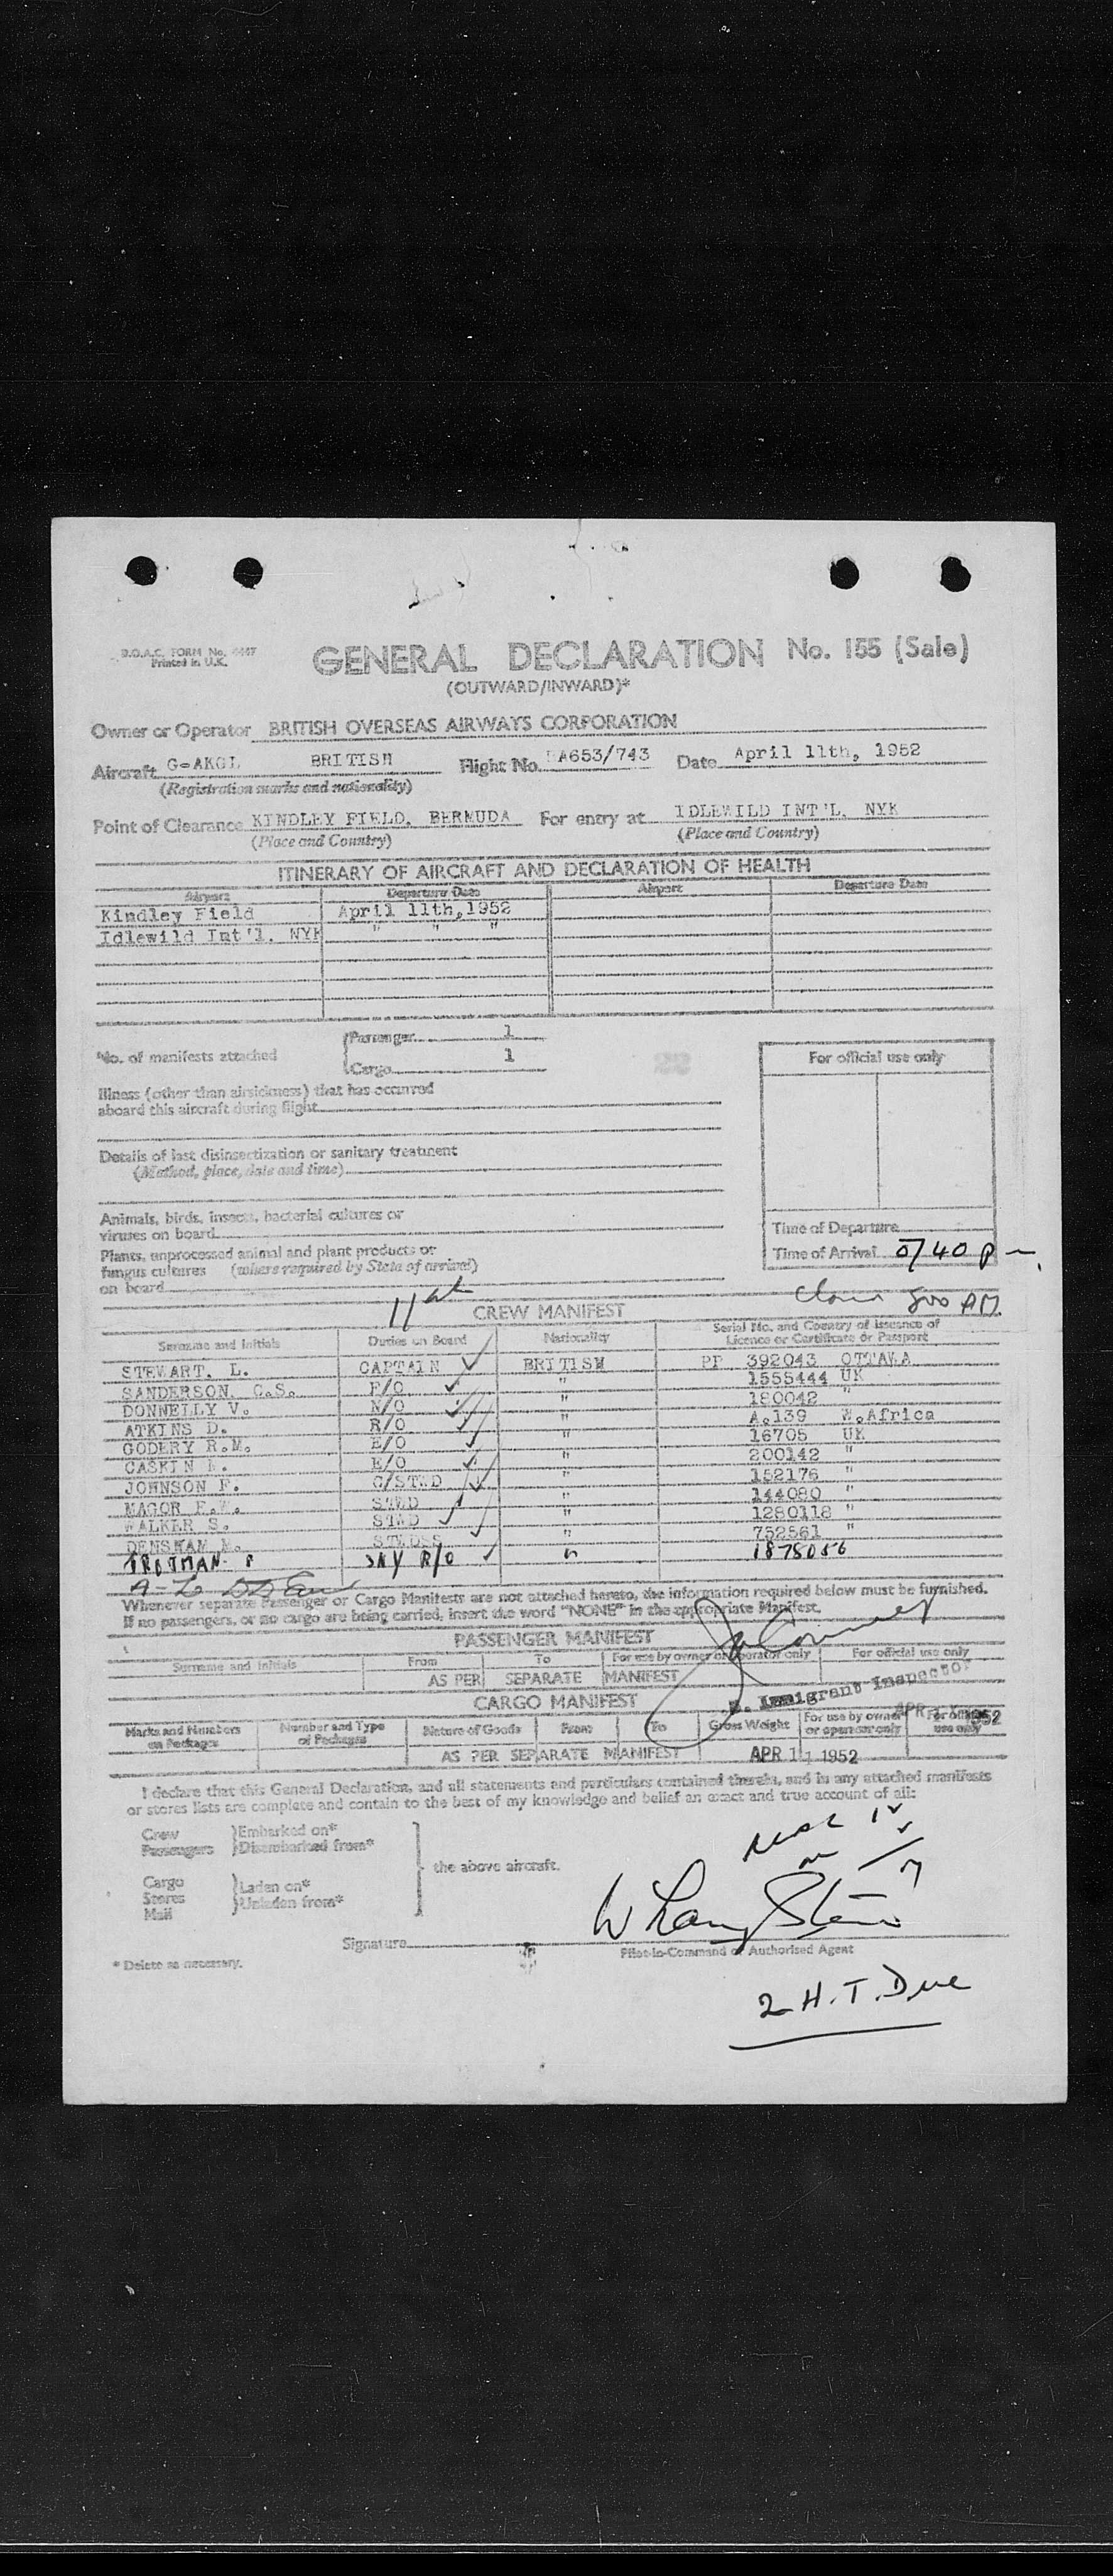 B.O.A.C. FORM No. 4447
Printed in U.K.
GENERAL DECLARATION No. 155 (Sale)
(OUTWARD/INWARD)*
Owner or Operator BRITISH OVERSEAS AIRWAYS CORPORATION
Aircraft G-AKGL BRITISH Flight No. BA653/743 Date April 11th, 1952
(Registration marks and nationality)
Point of Clearance KINDLEY FIELD, BERMUDA For entry at IDLEWILD INT'L, NYK
(Place and Country) (Place and Country)
ITINERARY OF AIRCRAFT AND DECLARATION OF HEALTH
Airport Departure Date Airport Departure Date
Kindley Field April 11th,1952
Idlewild Int'l. NYK " " "
No. of manifests attached
Passenger 1
Cargo 1
For official use only
Illness (other than airsickness) that has occurred
aboard this aircraft during flight
Details of last disinsectization or sanitary treatment
(Method, place, date and time)
Animals, birds, insects, bacterial cultures or
viruses on board
Plants, unprocessed animal and plant products or
fungus cultures (where required by State of arrival)
on board
Time of Departure
Time of Arrival 0740 p
800 AM
CREW MANIFEST
Surname and Initials Duties on Board Nationality Serial No. and Country of Issuance of
Licence or Certificate or Passport
STEWART. L. CAPTAIN BRITISH PP 392043 OTTAWA
SANDERSON. C.S. F/O " 1555444 UK
DONNELLY V. N/O " 180042 "
ATKINS D. R/O " A.139 W.Africa
GODERY R.M. E/O " 16705 UK
CASKIN E/O " 200142 "
JOHNSON F. C/STWD " 152176 "
MAGOR STWD " 144080 "
WALKER S. STWD " 1280118 "
DENSHAM M. STWDSS " 752561 "
TROTMAN R/O " 1878056
Whenever separate Passenger or Cargo Manifests are not attached hereto, the information required below must be furnished.
If no passengers, or no cargo are being carried, insert the word "NONE" in the appropriate Manifest.
PASSENGER MANIFEST
Surname and Initials From To For use by owner or operator only For official use only
AS PER SEPARATE MANIFEST
Immigrant Inspector
CARGO MANIFEST
Marks and Numbers on Packages Number and Type of Packages Nature of Goods From To Gross Weight For use by owner or operator only For official use only
APR 1952
AS PER SEPARATE MANIFEST APR 11 1952
I declare that this General Declaration, and all statements and particulars contained therein, and in any attached manifests
or stores lists are complete and contain to the best of my knowledge and belief an exact and true account of all:
Crew Embarked on*
Passengers Disembarked from*
the above aircraft.
Cargo Laden on*
Stores Unladen from*
Mail
Signature
Pilot-in-Command or Authorised Agent
* Delete as necessary.
2 H.T. Due